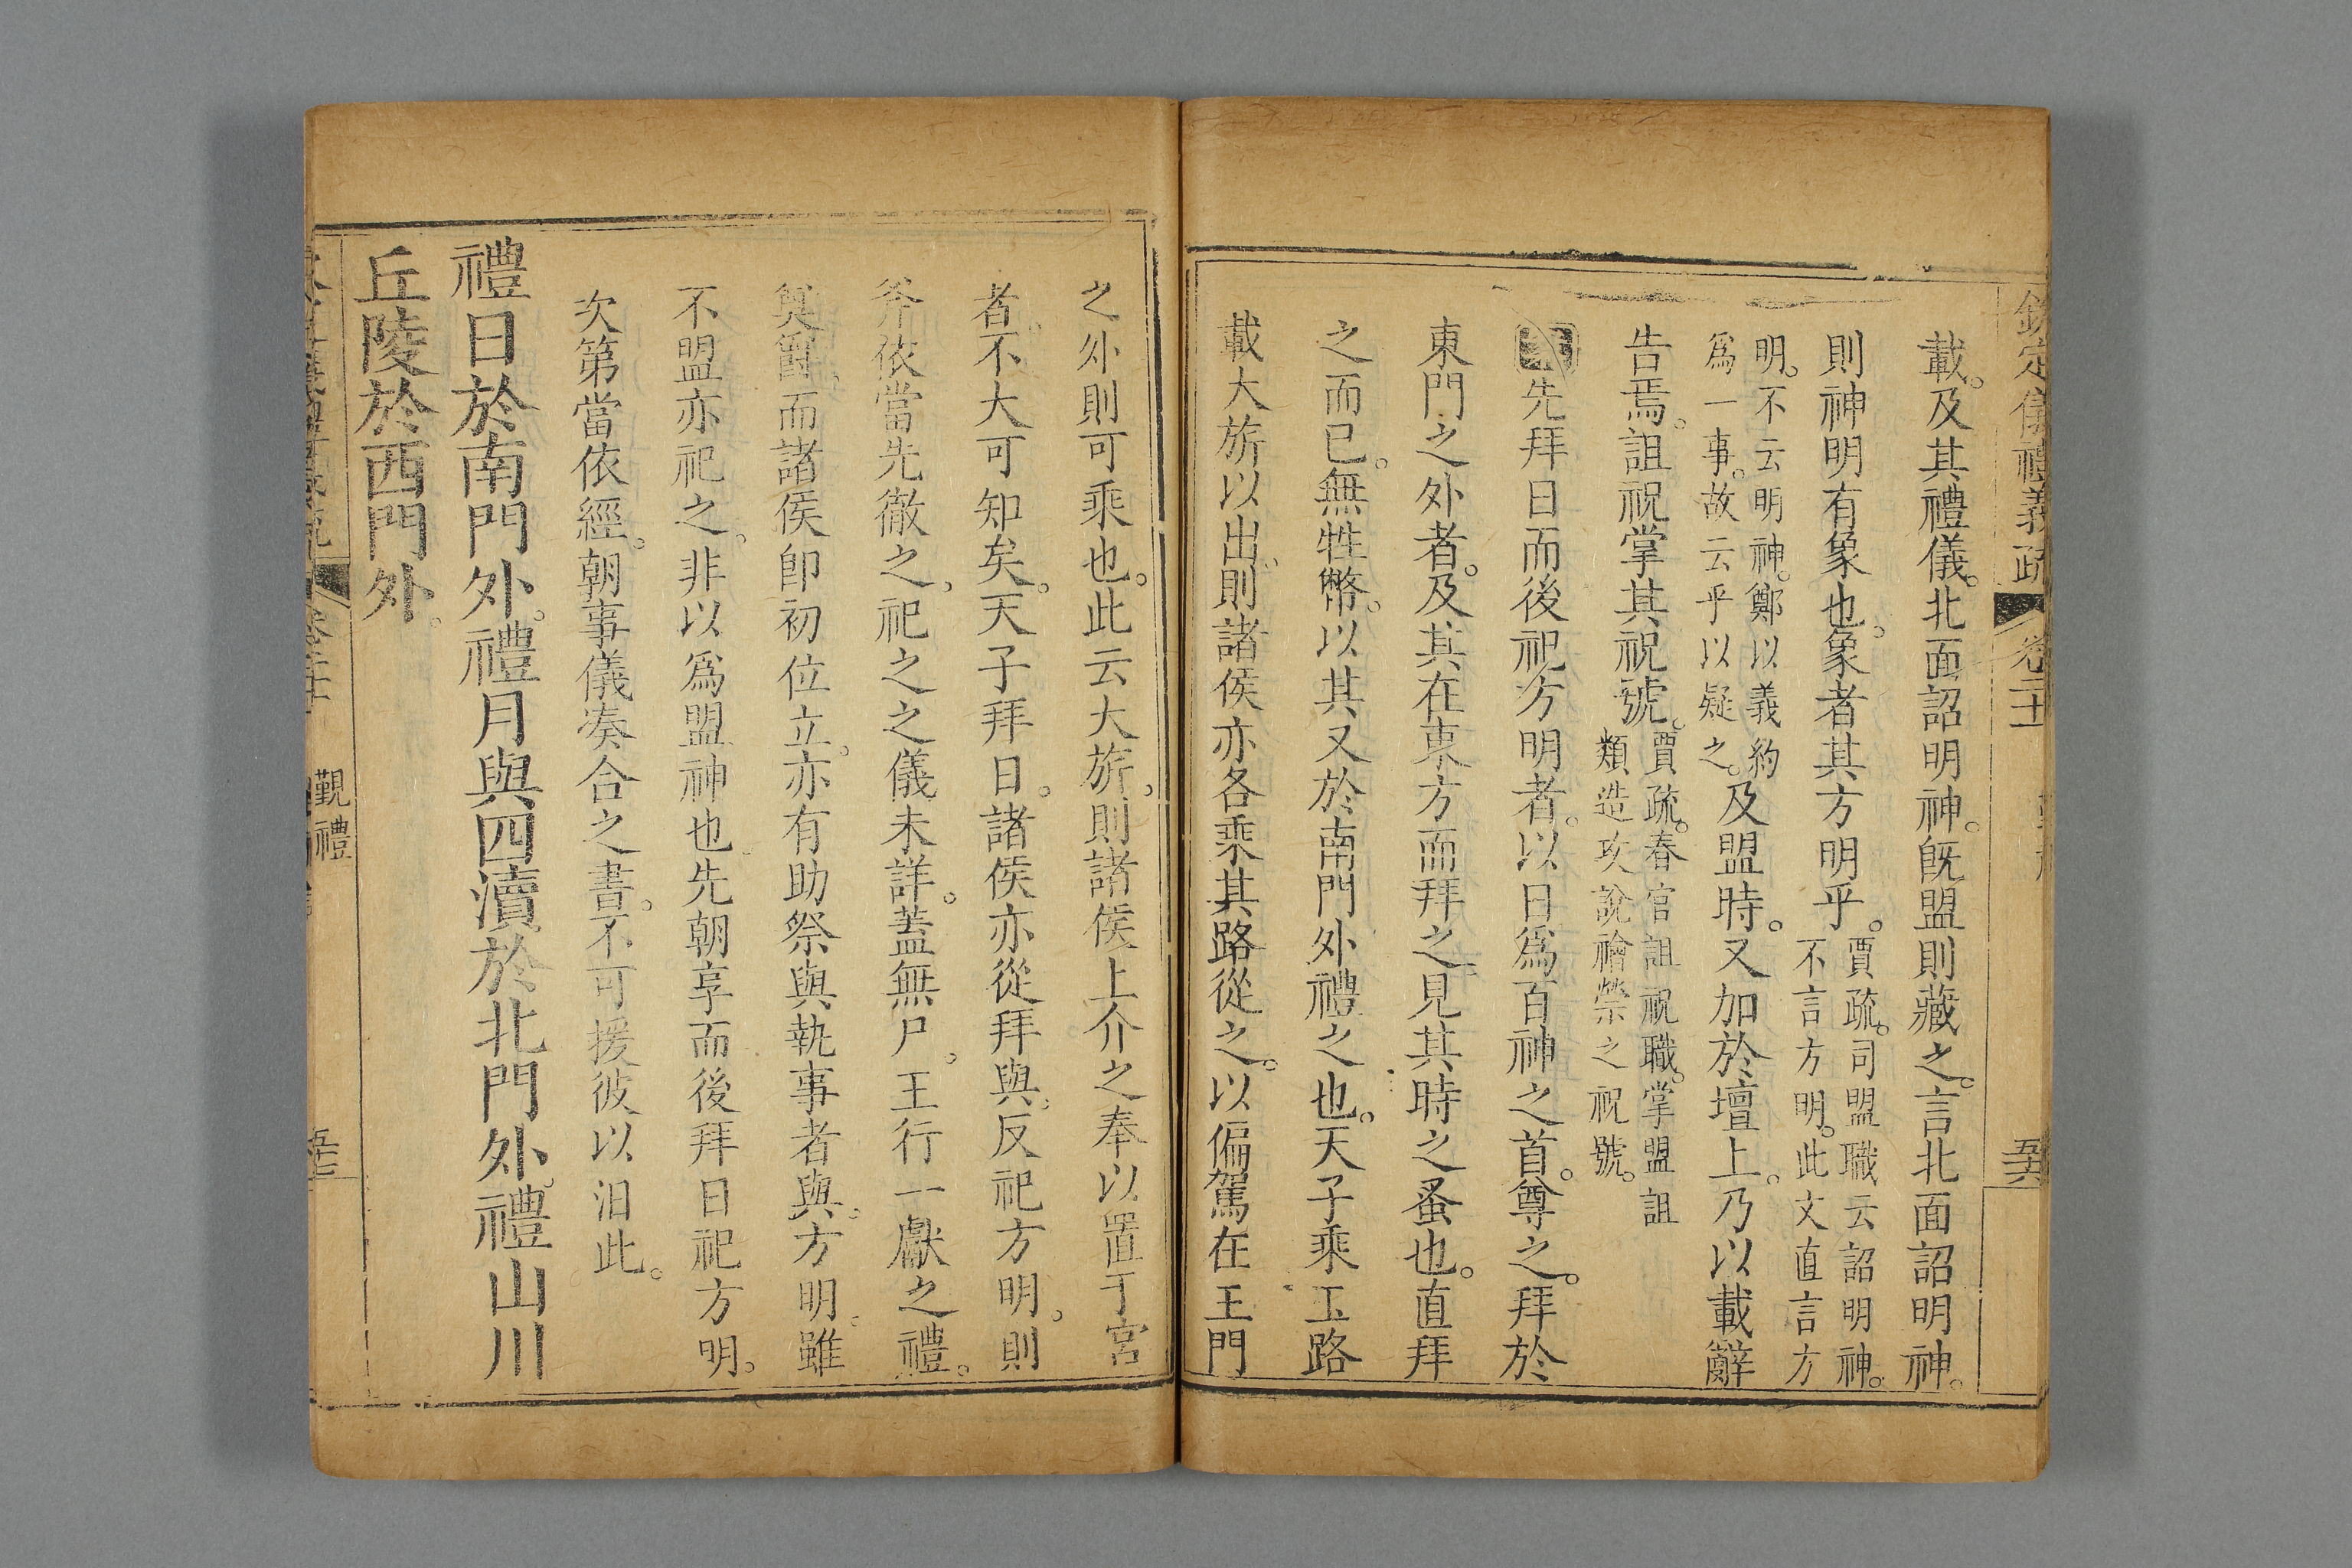 欽定儀禮義疏 卷二十
載。及其禮儀。北面詔明神。旣盟則藏之。言北面詔明神。
則神明有象也。象者其方明乎。賈疏。司盟職云詔明神。
不言方明。此文直言方
明。不云明神。鄭以義約
爲一事。故云乎以疑之。及盟時。又加於壇上。乃以載辭
告焉。詛祝掌其祝號。賈疏。春官詛祝職。掌盟詛
類造攻說禬禜之祝號。
先拜日而後祀方明者。以日爲百神之首。尊之。拜於
東門之外者。及其在東方而拜之。見其時之蚤也。直拜
之而已。無牲幣。以其又於南門外禮之也。天子乘玉路
載大旂以出。則諸侯亦各乘其路從之。以偏駕在王門
之外則可乘也。此云大旂。則諸侯上介之奉以置于宮
者。不大可知矣。天子拜日。諸侯亦從拜與。反祀方明。則
斧依當先徹之。祀之之儀未詳。蓋無尸。王行一獻之禮。
奠爵。而諸侯卽初位立。亦有助祭與執事者與。方明。雖
不盟亦祀之。非以爲盟神也先朝享而後拜日祀方明。
次第當依經。朝事儀湊合之書。不可援彼以汨此。
禮日於南門外。禮月與四瀆於北門外。禮山川
丘陵於西門外。
覲禮